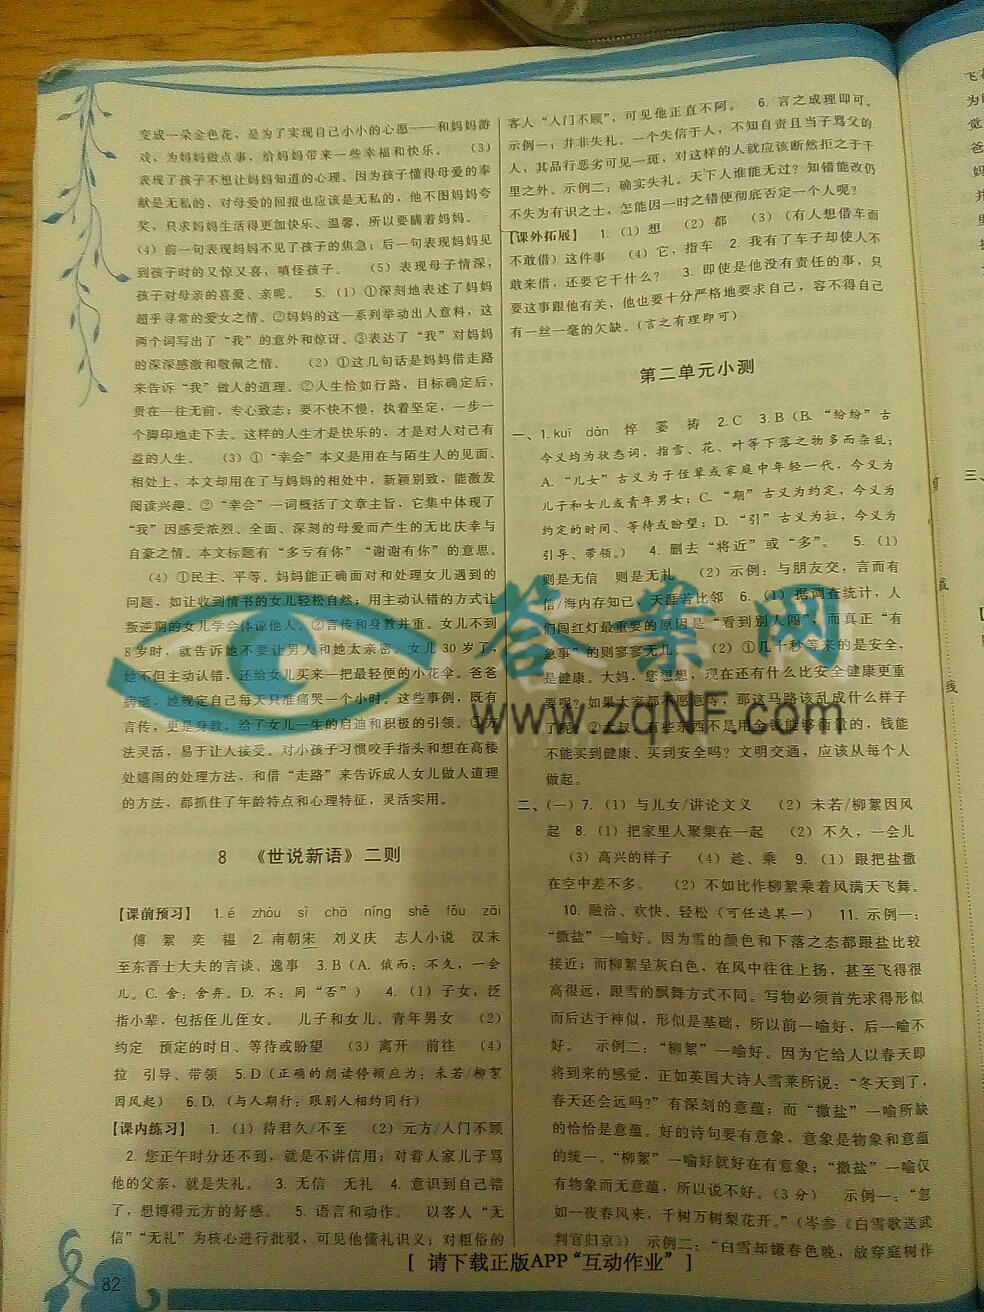 变成一朵金色花，是为了实现自己小小的心愿——和妈妈游
戏，为妈妈做点事，给妈妈带来一些幸福和快乐。 （3）
表现了孩子不想让妈妈知道的心理。因为孩子懂得母爱的奉
献是无私的，对母爱的回报也应该是无私的，他不图妈妈夸
奖，只求妈妈生活得更加快乐、温馨，所以要瞒着妈妈。
（4）前一句表现妈妈不见了孩子的焦急；后一句表现妈妈见
到孩子时的又惊又喜，嗔怪孩子。 （5）表现母子情深，
孩子对母亲的喜爱、亲昵。 5.（1）①深刻地表述了妈妈
超乎寻常的爱女之情。②妈妈的这一系列举动出人意料，这
两个词写出了“我”的意外和惊讶。③表达了“我”对妈妈
的深深感激和敬佩之情。 （2）①这几句话是妈妈借走路
来告诉“我”做人的道理。②人生恰如行路，目标确定后，
贵在一往无前，专心致志；要不快不慢，执着坚定，一步一
个脚印地走下去。这样的人生才是快乐的，才是对人对己有
益的人生。 （3）①“幸会”本义是用在与陌生人的见面、
相处上，本文却用在了与妈妈的相处中，新颖别致，能激发
阅读兴趣。②“幸会”一词概括了文章主旨，它集中体现了
“我”因感受浓烈、全面、深刻的母爱而产生的无比庆幸与
自豪之情。本文标题有“多亏有你”“谢谢有你”的意思。
（4）①民主、平等。妈妈能正确面对和处理女儿遇到的
问题，如让收到情书的女儿轻松自然；用主动认错的方式让
叛逆期的女儿学会体谅他人。②言传和身教并重。女儿不到
8岁时，就告诉她不要让男人和她太亲密。女儿30岁了，
她不但主动认错，还给女儿买来一把最轻便的小花伞。爸爸
病逝，她规定自己每天只准痛哭一个小时。这些事例，既有
言传，更是身教，给了女儿一生的启迪和积极的引领。③方
法灵活，易于让人接受。对小孩子习惯咬手指头和想在高楼
处嬉闹的处理方法，和借“走路”来告诉成人女儿做人道理
的方法，都抓住了年龄特点和心理特征，灵活实用。
8 《世说新语》二则
【课前预习】 1.é zhòu sì chā níng shě fǒu zāi
傅 絮 奕 韫 2.南朝宋 刘义庆 志人小说 汉末
至东晋士大夫的言谈、逸事 3.B（A.俄而：不久，一会
儿。C.舍：舍弃。D.不：同“否”） 4.（1）子女，泛
指小辈，包括侄儿侄女。 儿子和女儿、青年男女 （2）
约定 预定的时日、等待或盼望 （3）离开 前往 （4）
拉 引导、带领 5.D（正确的朗读停顿应为：未若/柳絮
因风起） 6.D.（与人期行：跟别人相约同行）
【课内练习】 1.（1）待君久/不至 （2）元方/入门不顾
2.您正午时分还不到，就是不讲信用；对着人家儿子骂
他的父亲，就是失礼。 3.无信 无礼 4.意识到自己错
了，想博得元方的好感。 5.语言和动作。 以客人“无
信”“无礼”为核心进行批驳，可见他懂礼识义；对粗俗的
客人“入门不顾”，可见他正直不阿。 6.言之成理即可。
示例一：并非失礼。一个失信于人，不知自责且当子骂父的
人，其品行恶劣可见一斑，对这样的人就应该断然拒之于千
里之外。示例二：确实失礼。天下人谁能无过？知错能改仍
不失为有识之士，怎能因一时之错便彻底否定一个人呢？
【课外拓展】 1.（1）想 （2）都 （3）（有人想借车而
不敢借）这件事 （4）它，指车 2.我有了车子却使人不
敢来借，还要它干什么？ 3.即使是他没有责任的事，只
要这事跟他有关，他也要十分严格地要求自己，容不得自己
有一丝一毫的欠缺。（言之有理即可）
第二单元小测
一、1.kuī dàn 悴 霎 祷 2.C 3.B（B.“纷纷”古
今义均为状态词，指雪、花、叶等下落之物多而杂乱；
A.“儿女”古义为子侄辈或家庭中年轻一代，今义为
儿子和女儿或青年男女；C.“期”古义为约定，今义为
约定的时间、等待或盼望；D.“引”古义为拉，今义为
引导、带领。） 4.删去“将近”或“多”。 5.（1）
则是无信 则是无礼 （2）示例：与朋友交，言而有
信/海内存知己，天涯若比邻 6.（1）据调查统计，人
们闯红灯最重要的原因是“看到别人闯”，而真正“有
急事”的则寥寥无几。 （2）①几十秒等来的是安全，
是健康。大妈，您想想，现在还有什么比安全健康更重
要呢？如果大家都不愿意等，那这马路该乱成什么样子
了呢？②大叔，有些东西不是用金钱能够衡量的，钱能
不能买到健康、买到安全吗？文明交通，应该从每个人
做起。
二、（一）7.（1）与儿女/讲论文义 （2）未若/柳絮因风
起 8.（1）把家里人聚集在一起 （2）不久，一会儿
（3）高兴的样子 （4）趁、乘 9.（1）跟把盐撒
在空中差不多。 （2）不如比作柳絮乘着风满天飞舞。
10.融洽、欢快、轻松（可任选其一） 11.示例一：
“撒盐”一喻好。因为雪的颜色和下落之态都跟盐比较
接近；而柳絮呈灰白色，在风中往往上扬，甚至飞得很
高很远，跟雪的飘舞方式不同。写物必须首先求得形似
而后达于神似，形似是基础，所以前一喻好，后一喻不
好。 示例二：“柳絮”一喻好。因为它给人以春天即
将到来的感觉，正如英国大诗人雪莱所说：“冬天到了，
春天还会远吗？”有深刻的意蕴；而“撒盐”一喻所缺
的恰恰是意蕴。好的诗句要有意象，意象是物象和意蕴
的统一。“柳絮”一喻好就好在有意象；“撒盐”一喻仅
有物象而无意蕴，所以说不好。（3分） 示例一：“忽
如一夜春风来，千树万树梨花开。”（岑参《白雪歌送武
判官归京》） 示例二：“白雪却嫌春色晚，故穿庭树作
82
[ 请下载正版APP“互动作业” ]
答案网
www.zqNF.com
线
三、